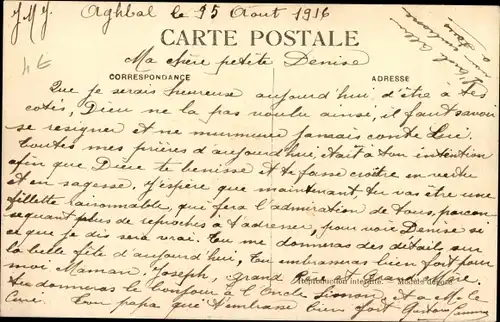 J.M.J. Aghbal le 15 Aout 1916
CARTE POSTALE
4 €
Ma chère petite Denise
CORRESPONDANCE ADRESSE
Que je serais heureuse aujourd'hui d'être a tes
cotés, Dieu ne la pas voulu ainsi, il faut savoir
se resigner et ne murmurer jamais contre Lui.
Toutes mes prières d'aujourd'hui, était a ton intention
afin que Dieu te benisse et te fasse croître en vertu
et en sagesse. J'espère que maintenant, tu vas être une
fillette raisonnable, qui fera l'admiration de tous,
plus de reproches a t'adresser, pour voir Denise si
ce que je dis sera vrai. Tu me donneras des détails sur
la belle fête d'aujourd'hui, Tu embrasseras bien fort pour
moi Maman, Joseph, Grand Père et Grand Mère.
Reproduction interdite. — Modèle déposé
tu donneras le bonjour a l'Oncle Simon, et a M. le
Curé. Ton papa qui t'embrasse bien fort Gaston